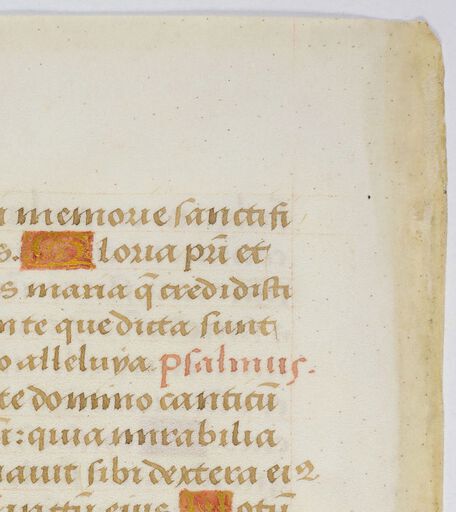 memorie sanctifi
s. Gloria pr̃i et
s maria q̃ credidisti
nte que dicta sunt
o alleluya. psalmus.
te domino canticũ
ã: quia mirabilia
auit sibi dextera ei9
ctũ eius. Notũ